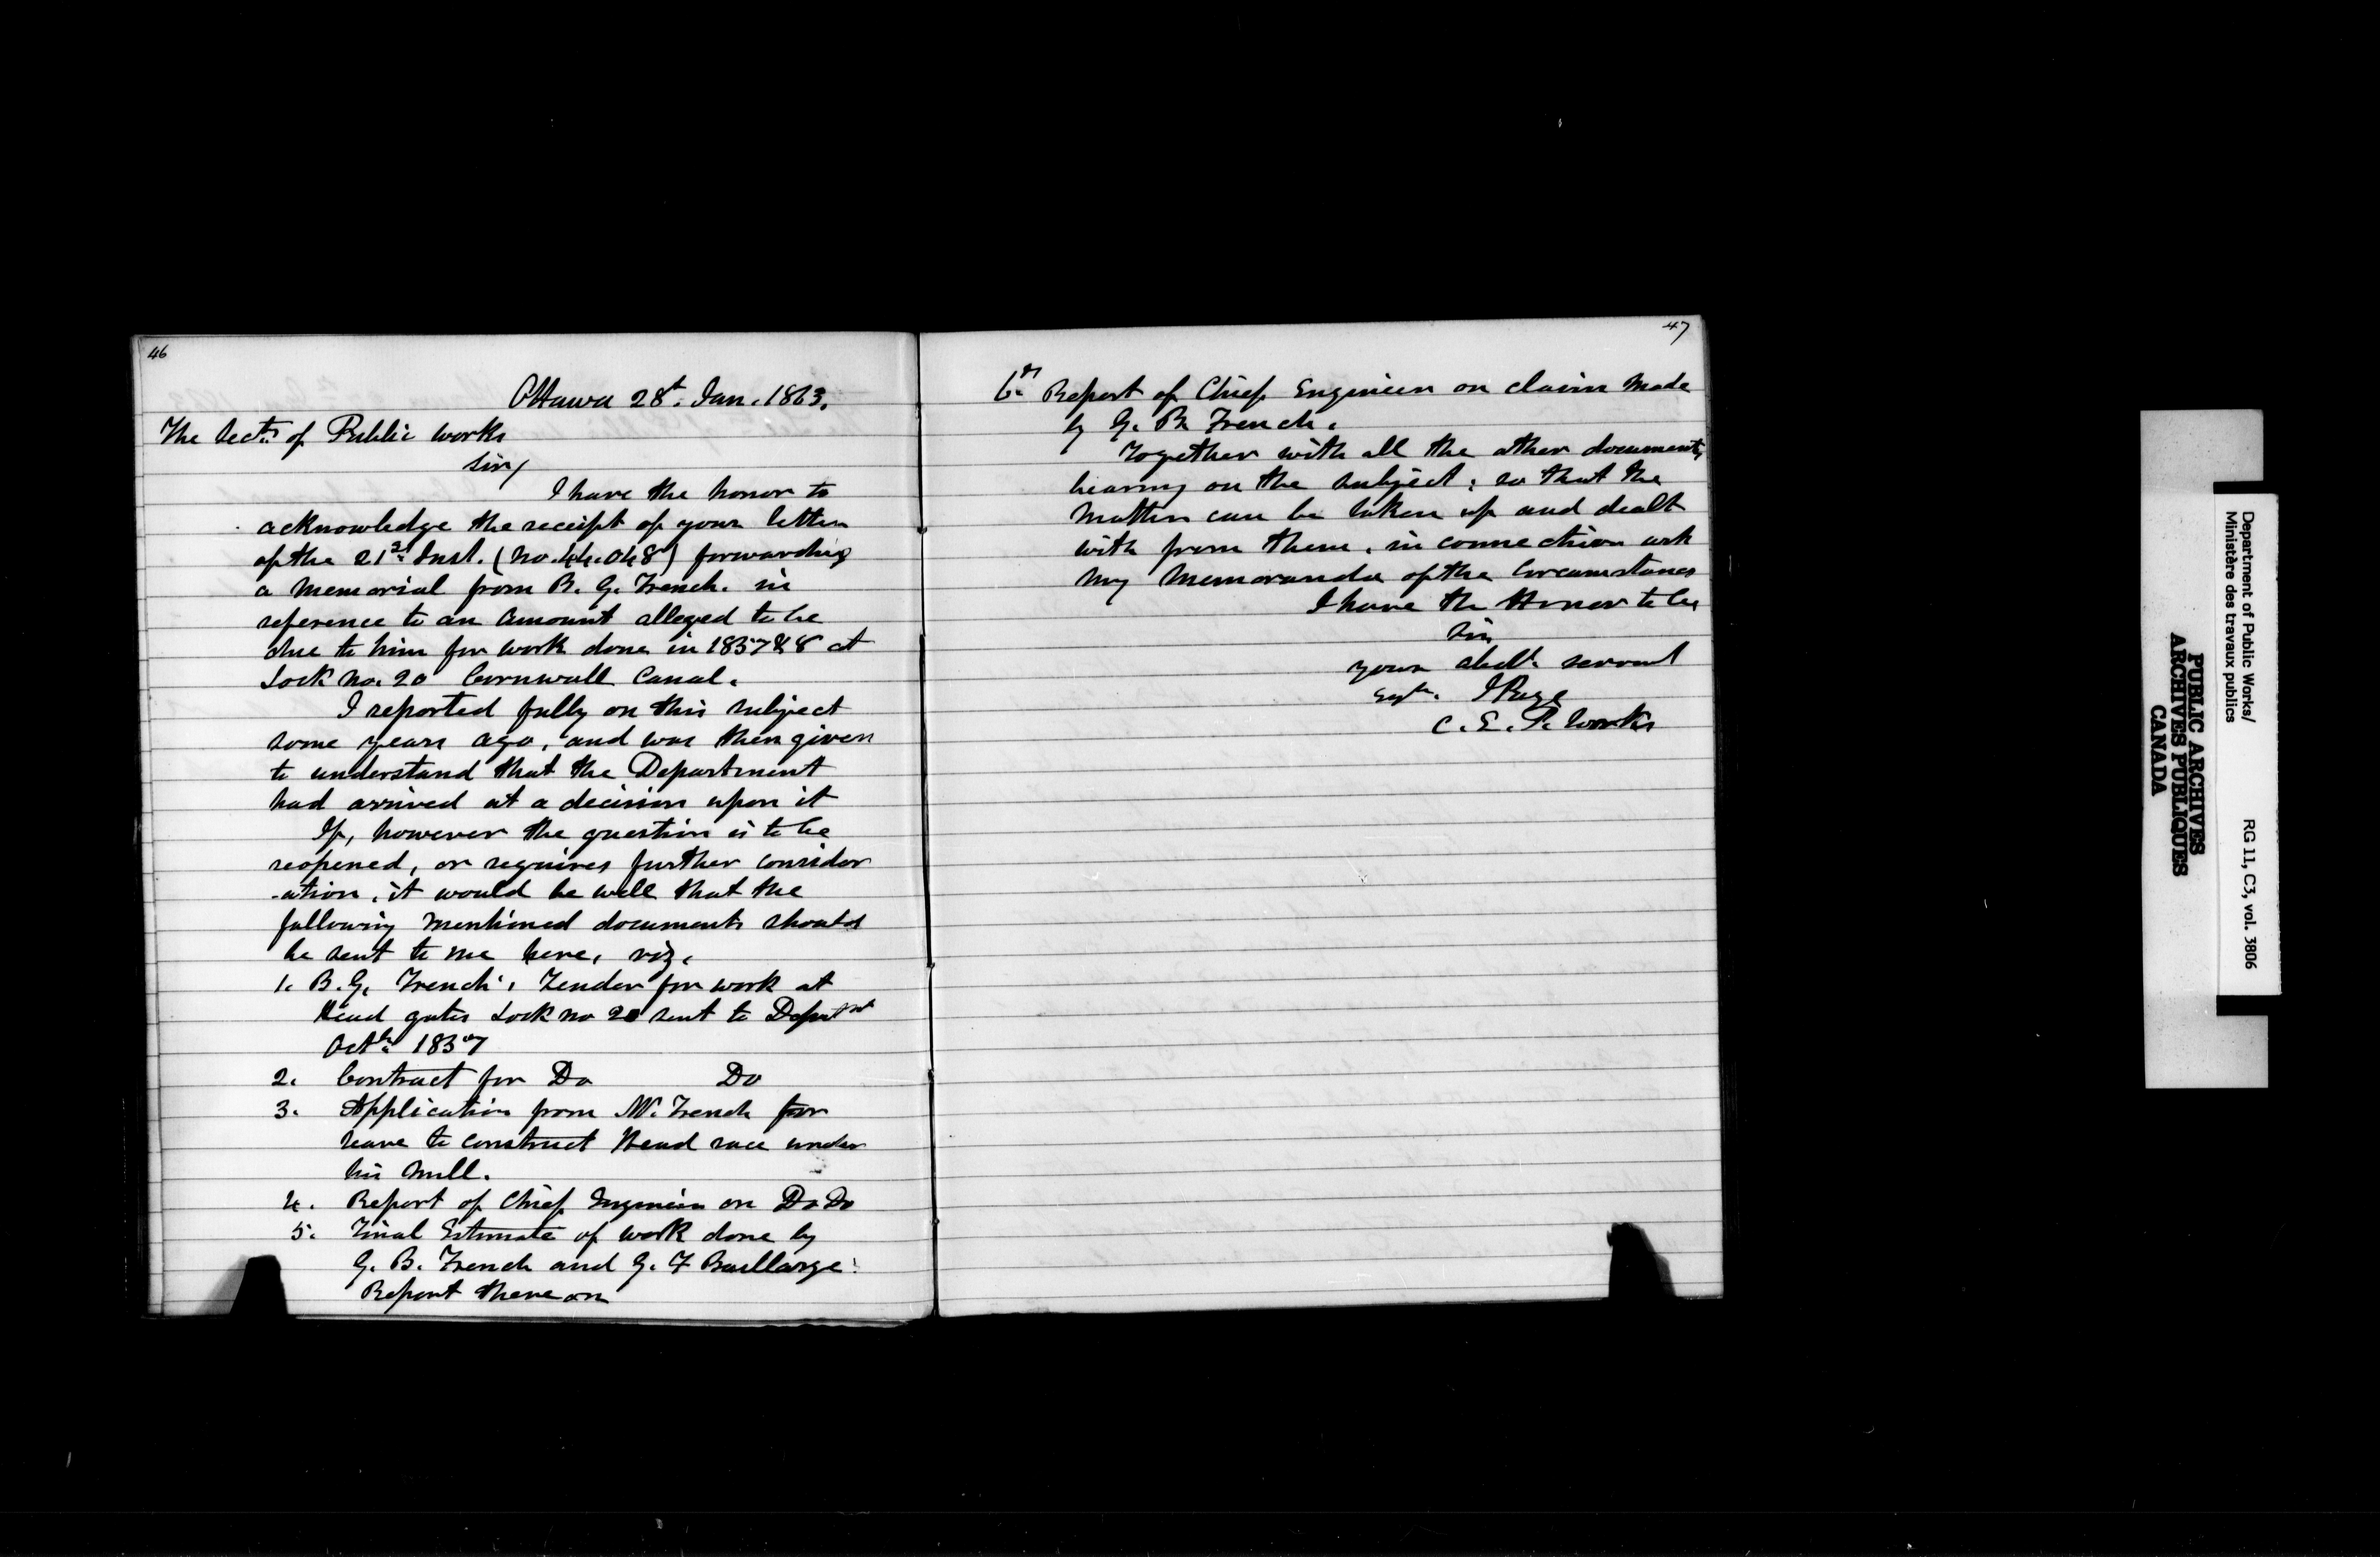 46
Ottawa 28t. Jan. 1863.
The Secty of Public Works
Sir,
I have the honor to
acknowledge the receipt of your letter
of the 21st Inst. (No. 44.048) forwarding
a Memorial from B. G. French. in
reference to an Amount alleged to be
due to him for work done in 1857 & 8 at
Lock No. 20 Cornwall Canal.
I reported fully on this subject
some years ago, and was then given
to understand that the Department
had arrived at a decision upon it
If, however the question is to be
reopened, or requires further consider
-ation, it would be well that the
following mentioned documents should
be sent to me here, viz.
1. B. G. French's Tender for work at
Head gates Lock no 20 sent to Depart nt
Octbr 1857
2. Contract for Do Do
3. Application from Mr. French for
leave to construct Head race under
his Mill.
4. Report of Chief Engineer on Do Do
5. Final Estimate of work done by
G. B. French and G. F Baillarge
Report thereon
47
6. Report of Chief Engineer on claim Made
by G. B. French.
Together with all the other documents,
bearing on the subject; so that the
Matter can be taken up and dealt
with from them, in connection with
My Memoranda of the Circumstances
I have the Honor to be
Sir
your obedt. servant
Sigd. J Page
C. E. P. Works
Department of Public Works/
Ministère des travaux publics
RG 11, C3, vol. 3806
PUBLIC ARCHIVES
ARCHIVES PUBLIQUES
CANADA